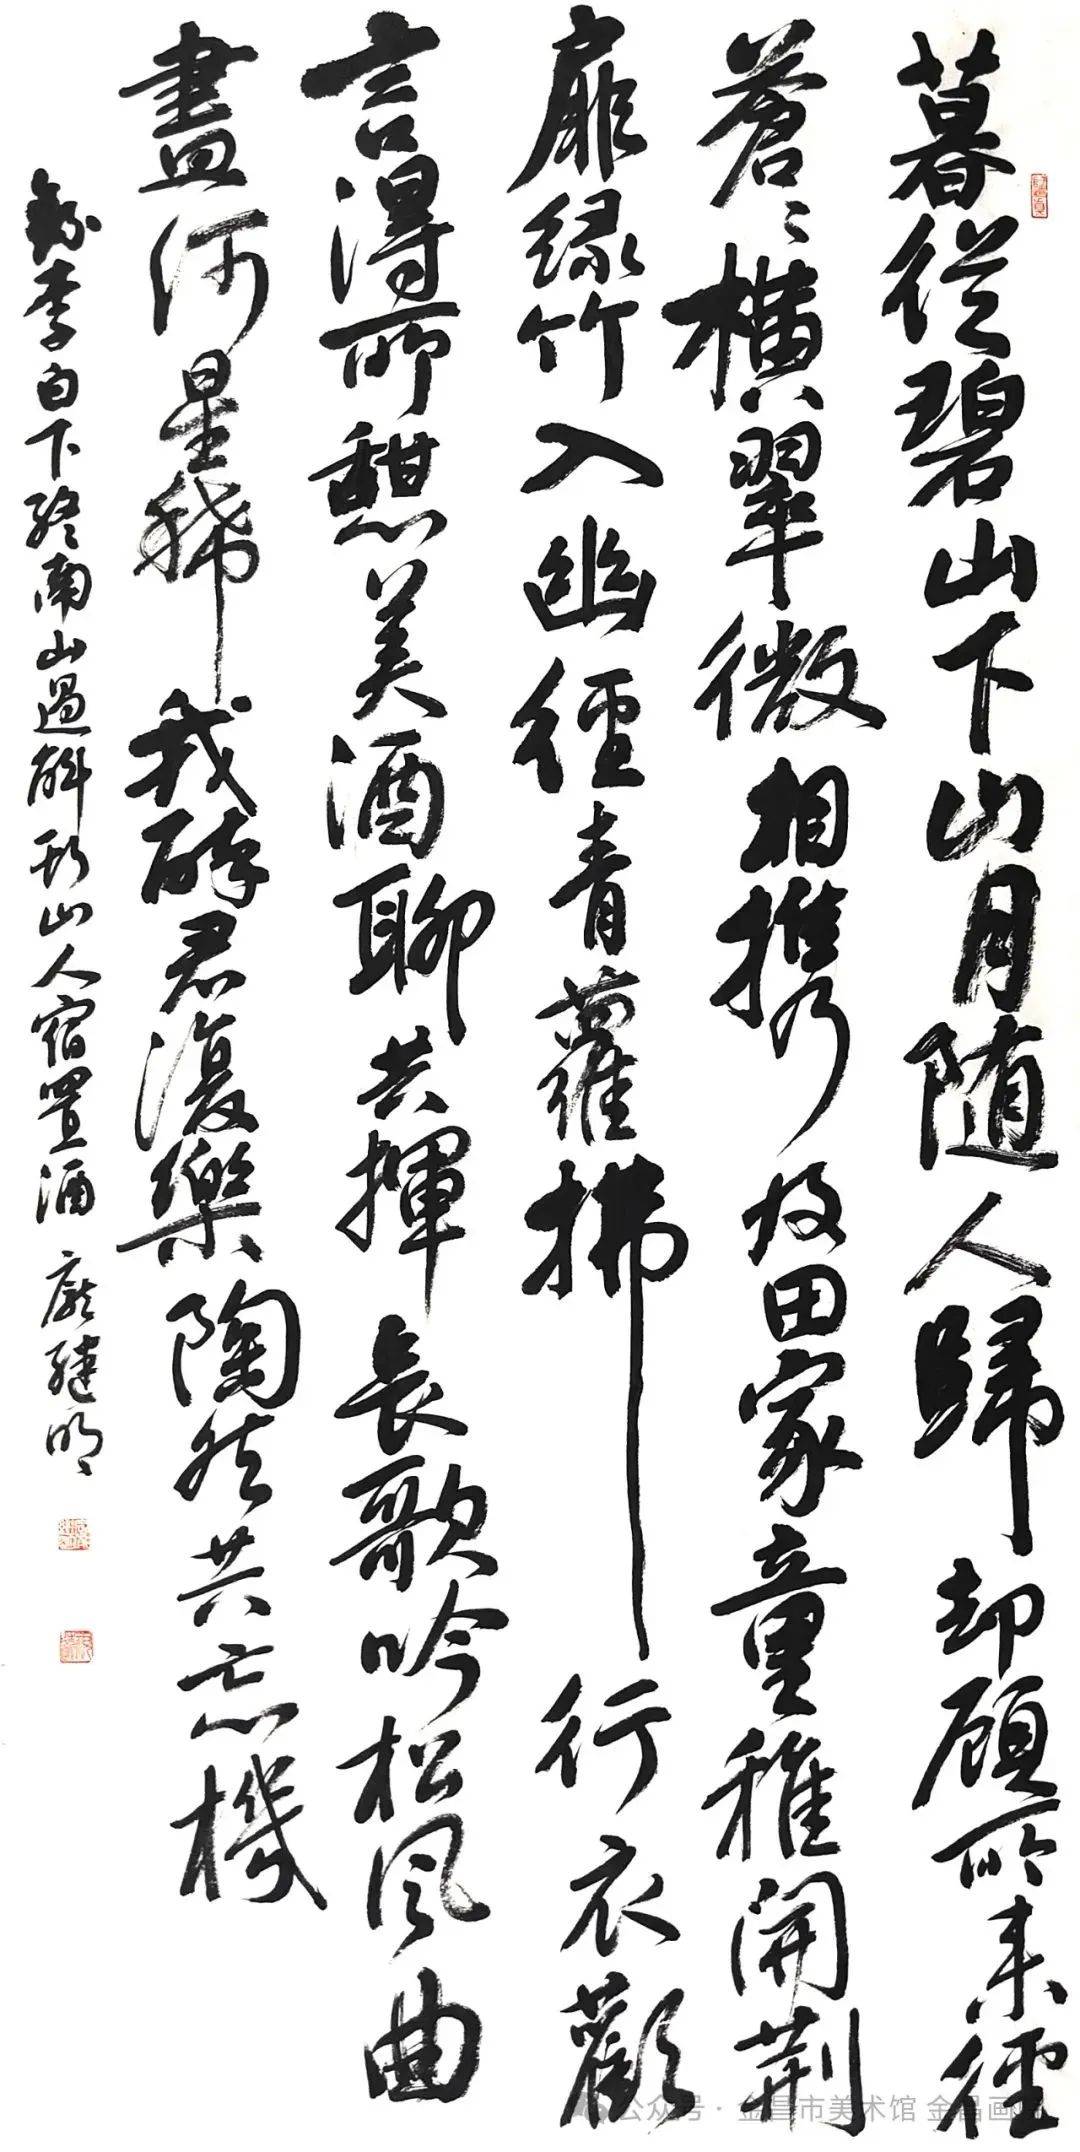 暮從碧山下山月随人歸却顧所来徑
蒼〻横翠微相携及田家童稚開荆
扉緑竹入幽徑青蘿拂行衣歡
言得所憩美酒聊共揮長歌吟松風曲
盡河星稀我醉君復樂陶然共忘機
録李白下終南山過斛斯山人宿置酒 龐繼明
公众号 · 金昌市美术馆 金昌画